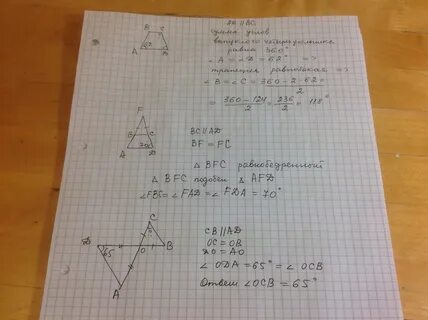 BC
62°
A D
DA || BC.
Сумма углов
выпуклого четырехугольника
равна 360°
∠A = ∠D = 62° =>
трапеция равнобокая =>
∠B = ∠C = 360 - 2·62 / 2
= 360 - 124 / 2 = 236 / 2 = 118°
2
F
B C
70°
A D
BC || AD
BF = FC
△ BFC равнобедренный
△ BFC подобен △ AFD
∠FBC = ∠FAD = ∠FDA = 70°
C
D 65 O B
A
CB || AD
OC = OB
DO = AO
∠ODA = 65° = ∠OCB
Ответ ∠OCB = 65°